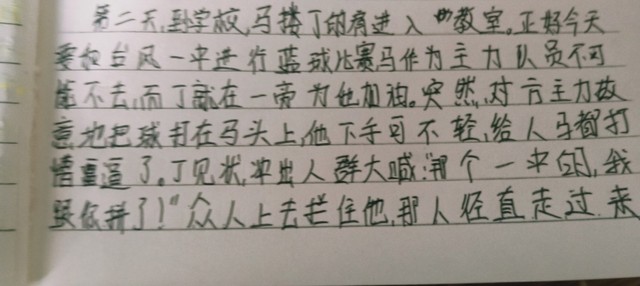 第二天,到学校,马搂丁的肩进入教室。正好今天
要和台风一中进行蓝球比赛马作为主力队员不可
能不去,而丁就在一旁为他加油。突然,对方主力故
意地把球打在马头上,他下手可不轻,给人马都打
懵逼了。丁见状,冲出人群大喊:"那个一中的,我
跟你拼了!"众人上去拦住他,那人径直走过来